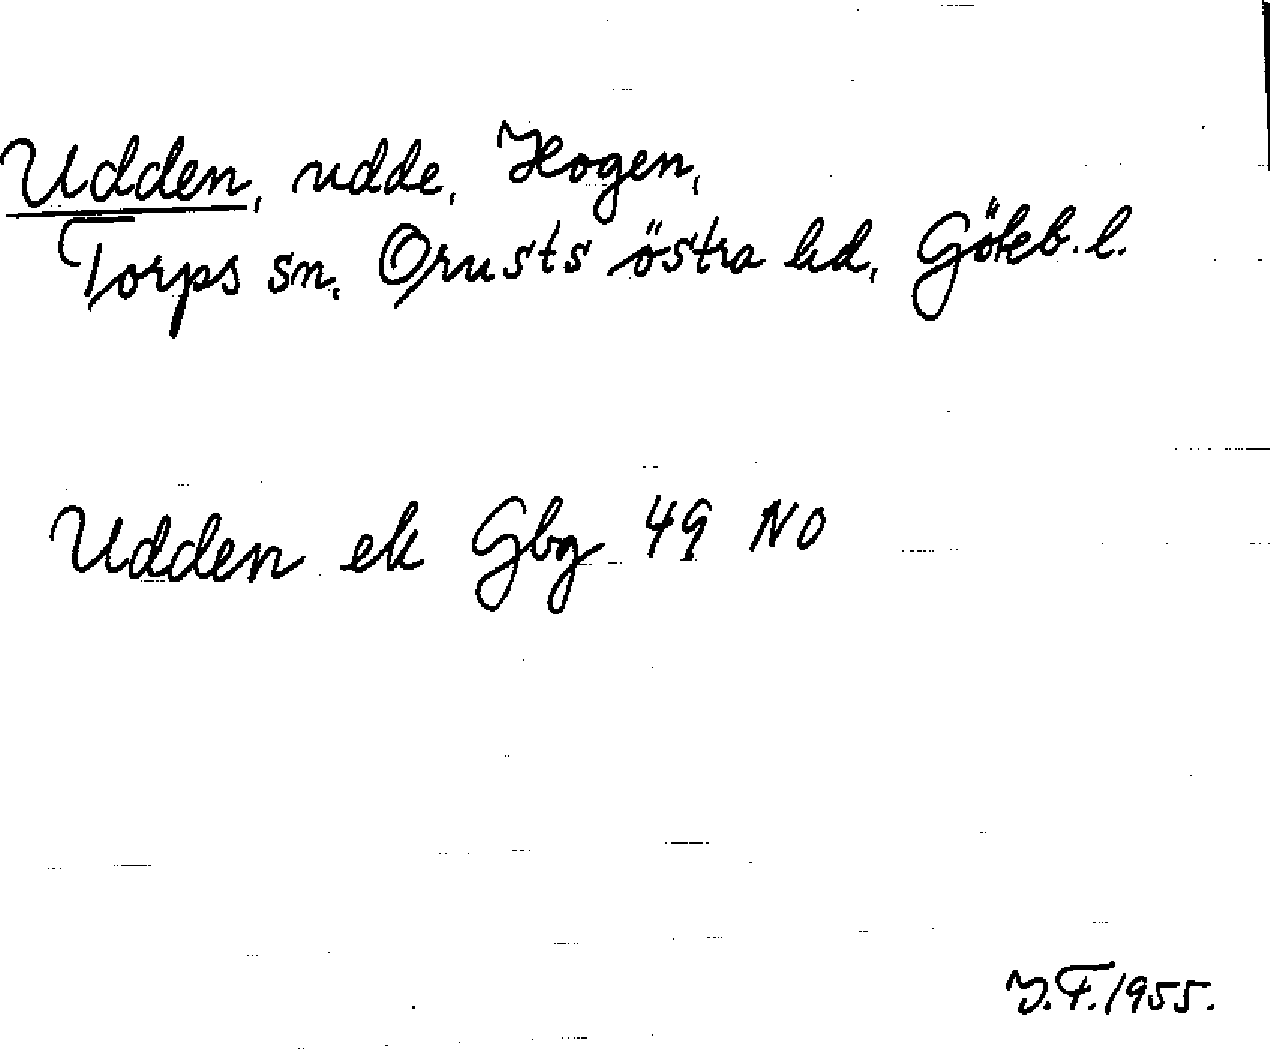 Udden, udde, Hogen,
Torps sn, Orusts östra hd, Göteb. l.
Udden ek Gbg 49 NO
J.F. 1955.